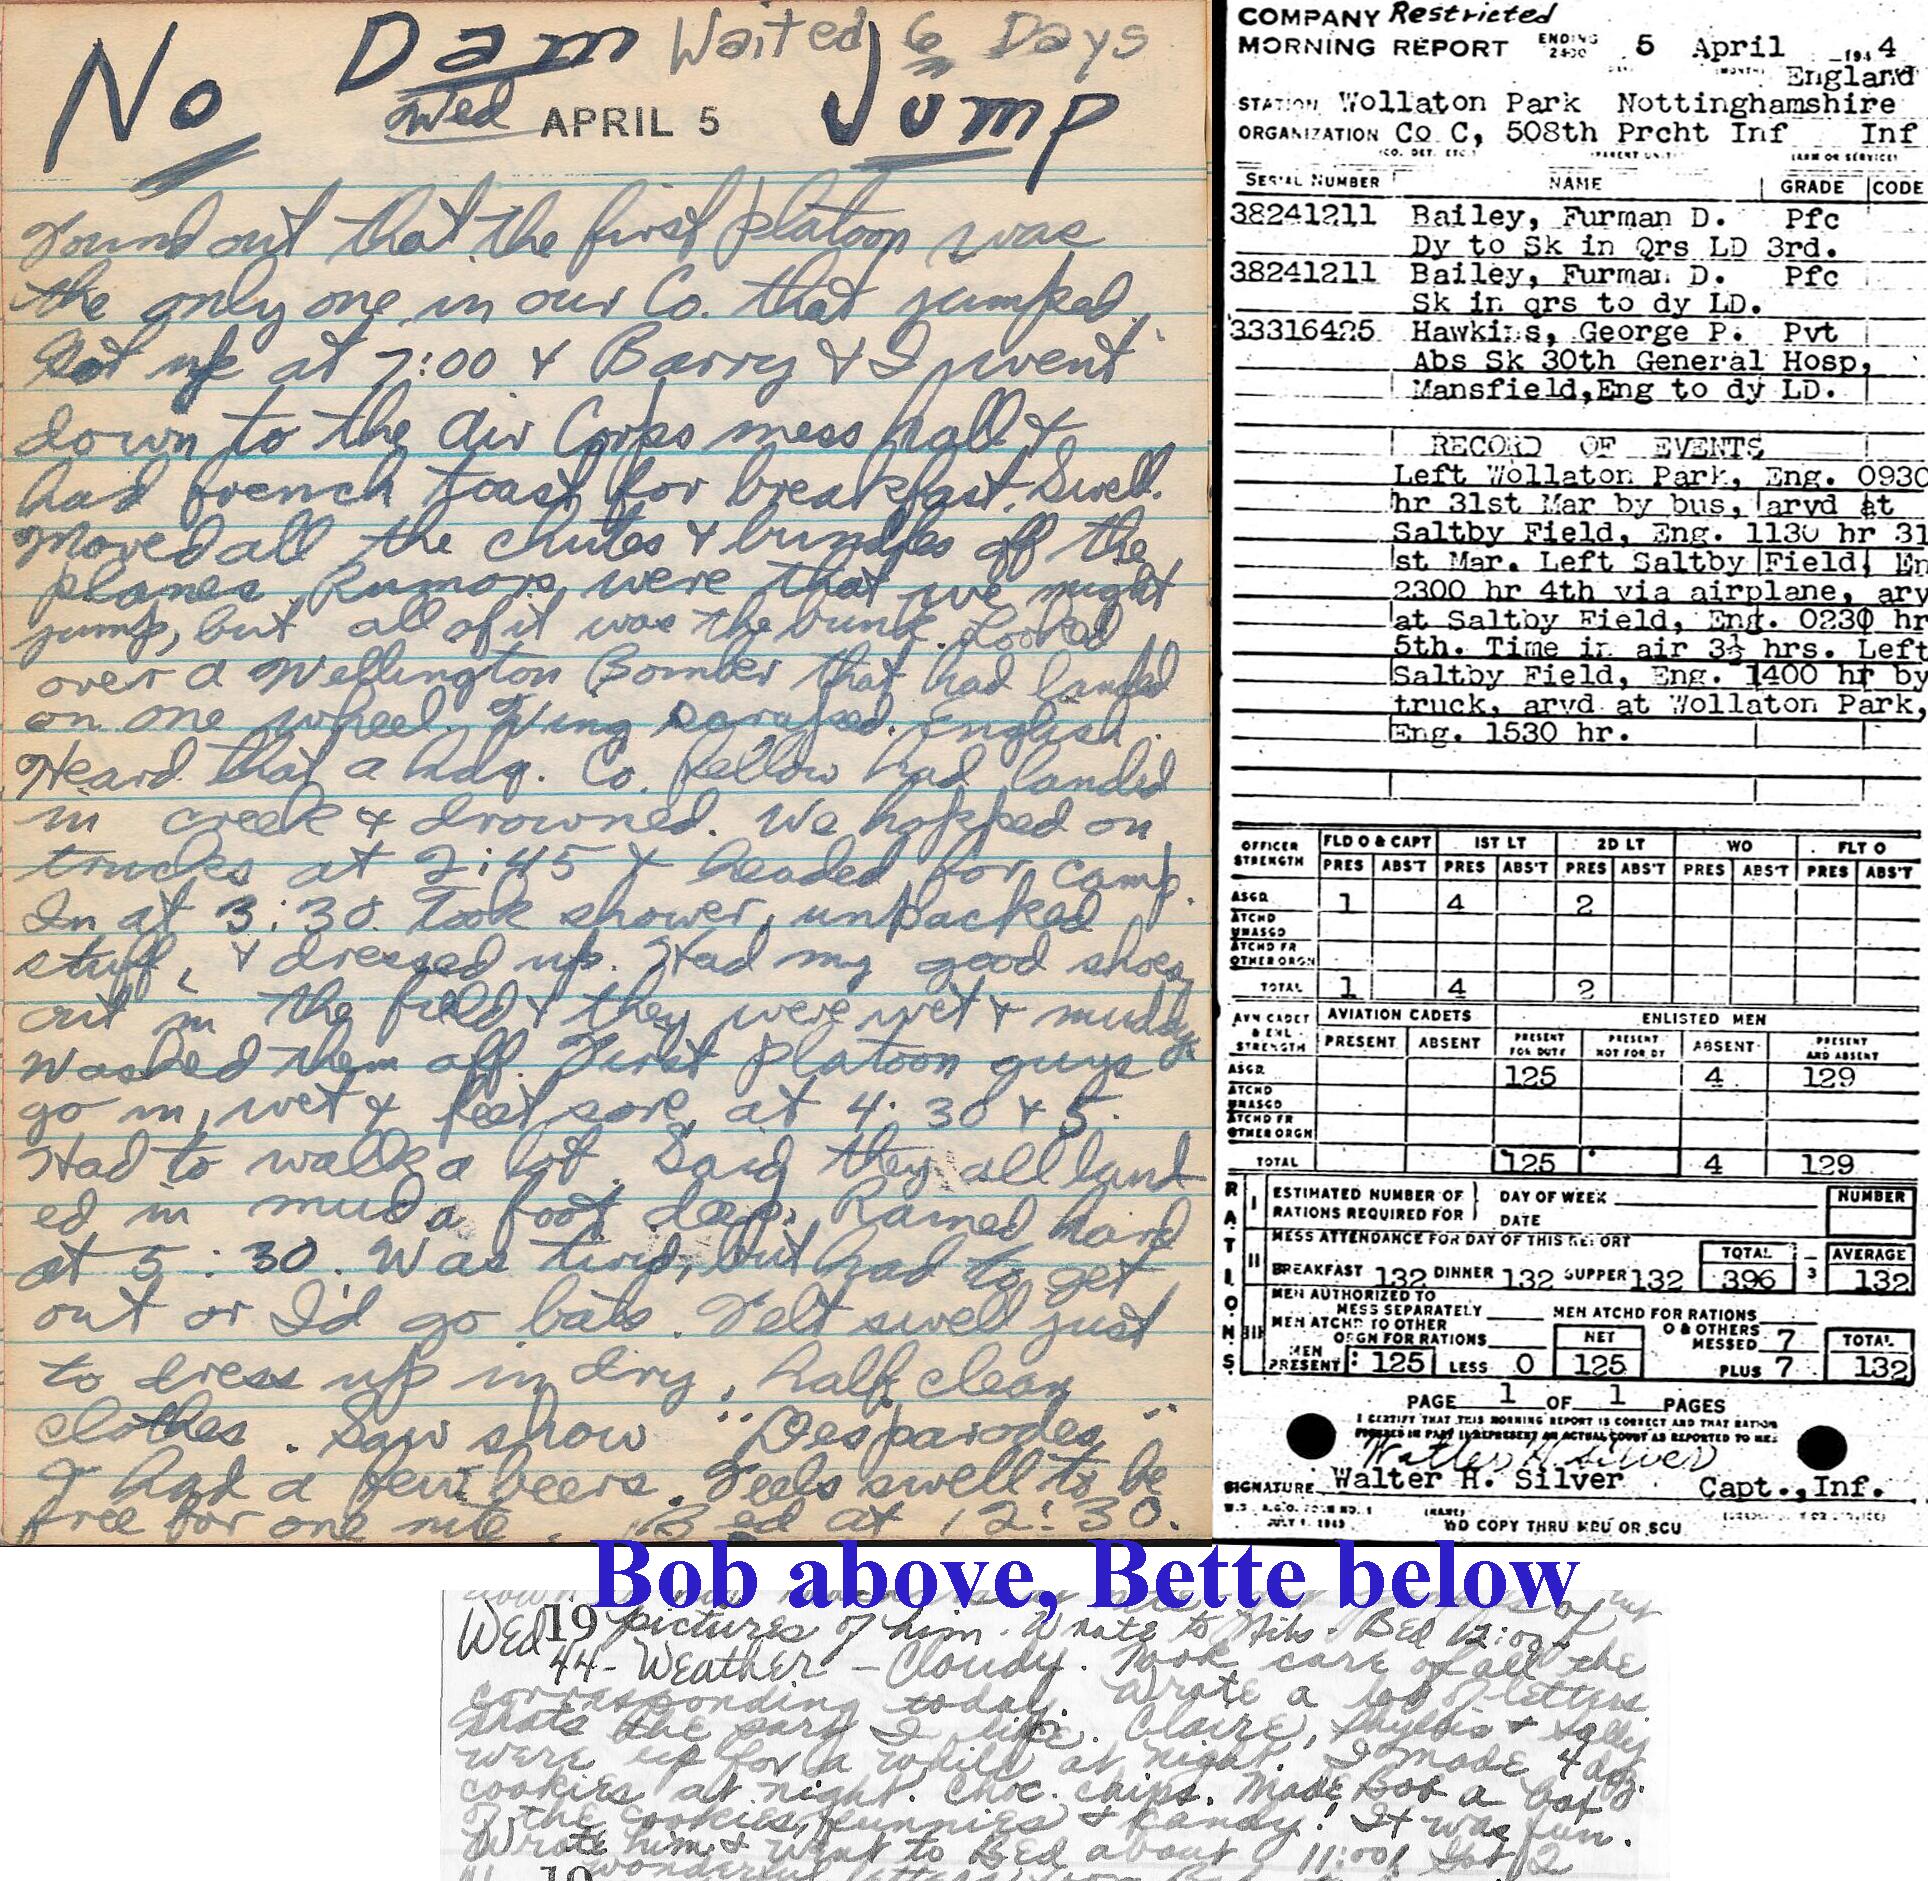 No Dam Waited 6 Days
Wed APRIL 5 Jump
Found out that the first platoon was
the only one in our Co. that jumped.
Got up at 7:00 & Barry & I went
down to the Air Corps mess hall &
had french toast for breakfast. Swell.
Moved all the chutes & bundles off the
planes. Rumors were that we might
jump, but all of it was the bunk. Looked
over a Wellington Bomber that had landed
on one wheel. Wing scraped. English.
Heard that a hdq. Co. fellow had landed
in creek & drowned. We hopped on
trucks at 2:45 & headed for camp.
In at 3:30. Took shower, unpacked
stuff, & dressed up. Had my good shoes
out in the field & they were wet & muddy.
Washed them off. First platoon guys
go in, wet & feet sore, at 4:30 & 5.
Had to walk a lot. Said they all land
ed in mud a foot deep. Rained hard
at 5:30. Was tired, but had to get
out or I'd go bats. Felt swell just
to dress up in dry, half clean
clothes. Saw show "Desparodes"
I had a few beers. Feels swell to be
free for one nite. Bed at 12:30.
COMPANY Restricted
MORNING REPORT ENDING 2400 5 April 1944
England
STATION Wollaton Park Nottinghamshire
ORGANIZATION Co C, 508th Prcht Inf Inf
(CO. DET. ETC.) (PARENT UNIT) (ARM OR SERVICE)
SERIAL NUMBER NAME GRADE CODE
38241211 Bailey, Furman D. Pfc
Dy to Sk in Qrs LD 3rd.
38241211 Bailey, Furman D. Pfc
Sk in qrs to dy LD.
33316425 Hawkins, George P. Pvt
Abs Sk 30th General Hosp,
Mansfield,Eng to dy LD.
RECORD OF EVENTS
Left Wollaton Park, Eng. 0930
hr 31st Mar by bus, arvd at
Saltby Field, Eng. 1130 hr 31
st Mar. Left Saltby Field, En
2300 hr 4th via airplane, arv
at Saltby Field, Eng. 0230 hr
5th. Time in air 3½ hrs. Left
Saltby Field, Eng. 1400 hr by
truck, arvd at Wollaton Park,
Eng. 1530 hr.
OFFICER STRENGTH FLD O & CAPT 1ST LT 2D LT WO FLT O
PRES ABS'T PRES ABS'T PRES ABS'T PRES ABS'T PRES ABS'T
ASGD 1 4 2
ATCHD UNASGD
ATCHD FR OTHER ORGN
TOTAL 1 4 2
AVN CADET & ENL STRENGTH AVIATION CADETS ENLISTED MEN
PRESENT ABSENT PRESENT FOR DUTY PRESENT NOT FOR DY ABSENT PRESENT AND ABSENT
ASGD 125 4 129
ATCHD UNASGD
ATCHD FR OTHER ORGN
TOTAL 125 4 129
RATIONS
I ESTIMATED NUMBER OF RATIONS REQUIRED FOR DAY OF WEEK DATE NUMBER
II MESS ATTENDANCE FOR DAY OF THIS REPORT TOTAL AVERAGE
BREAKFAST 132 DINNER 132 SUPPER 132 396 3 132
III MEN AUTHORIZED TO MESS SEPARATELY MEN ATCHD FOR RATIONS
MEN ATCHD TO OTHER ORGN FOR RATIONS NET O & OTHERS MESSED 7 TOTAL
MEN PRESENT 125 LESS 0 125 PLUS 7 132
PAGE 1 OF 1 PAGES
I CERTIFY THAT THIS MORNING REPORT IS CORRECT AND THAT RATION
FIGURES IN PART III REPRESENT AN ACTUAL COUNT AS REPORTED TO ME:
Walter H Silver
SIGNATURE Walter H. Silver Capt., Inf.
W.D. A.G.O. FORM NO. 1
JULY 1, 1943 (NAME) WD COPY THRU MRU OR SCU
Bob above, Bette below
Wed 19 pictures of him. Wrote to Bed 12:00
44 - Weather - Cloudy. Took care of all the
corresponding today. Wrote a lot of letters
thats the part I like. Claire, Phyllis & Sally
were up for a while at night. I made 4 doz.
cookies at night. Choc. chips. Made Bob a box
of the cookies, funnies & Kandy! It was fun.
Wrote him & went to Bed about 11:00! Got 2
19 wonderful letters from